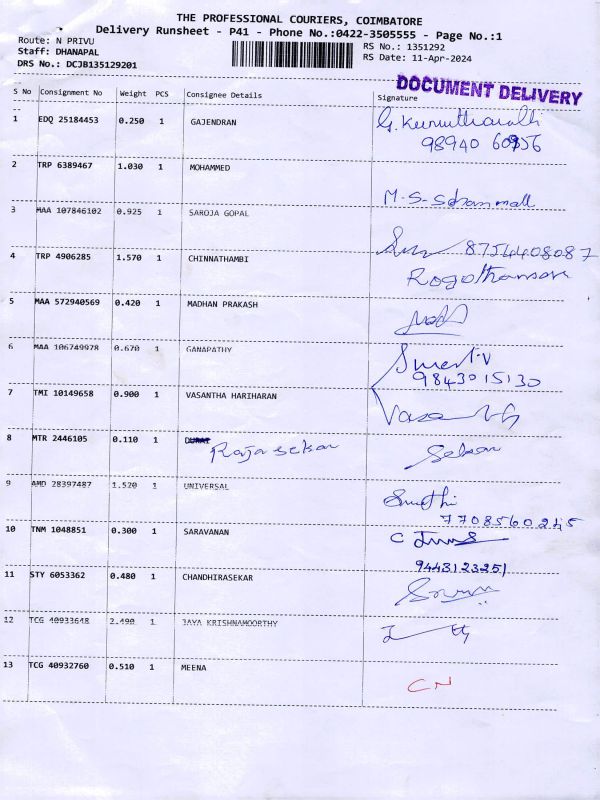 THE PROFESSIONAL COURIERS, COIMBATORE
Delivery Runsheet - P41 - Phone No.:0422-3505555 - Page No.:1
Route: N PRIVU
Staff: DHANAPAL
DRS No.: DCJB135129201
RS No.: 1351292
RS Date: 11-Apr-2024
DOCUMENT DELIVERY
S No Consignment No Weight PCS Consignee Details Signature
1 EDQ 25184453 0.250 1 GAJENDRAN
98940 60956
2 TRP 6389467 1.030 1 MOHAMMED
M-S-
3 MAA 107846102 0.925 1 SAROJA GOPAL
8754408087
4 TRP 4906285 1.570 1 CHINNATHAMBI
5 MAA 572940569 0.420 1 MADHAN PRAKASH
6 MAA 106749978 0.670 1 GANAPATHY
9843015130
7 TMI 10149658 0.900 1 VASANTHA HARIHARAN
8 MTR 2446105 0.110 1 Rajasekar Sekar
9 AMD 28397487 1.520 1 UNIVERSAL
7708560245
10 TNM 1048851 0.300 1 SARAVANAN
9448123251
11 STY 6053362 0.480 1 CHANDHIRASEKAR
12 TCG 40933648 2.490 1 JAYA KRISHNAMOORTHY
13 TCG 40932760 0.510 1 MEENA
CN